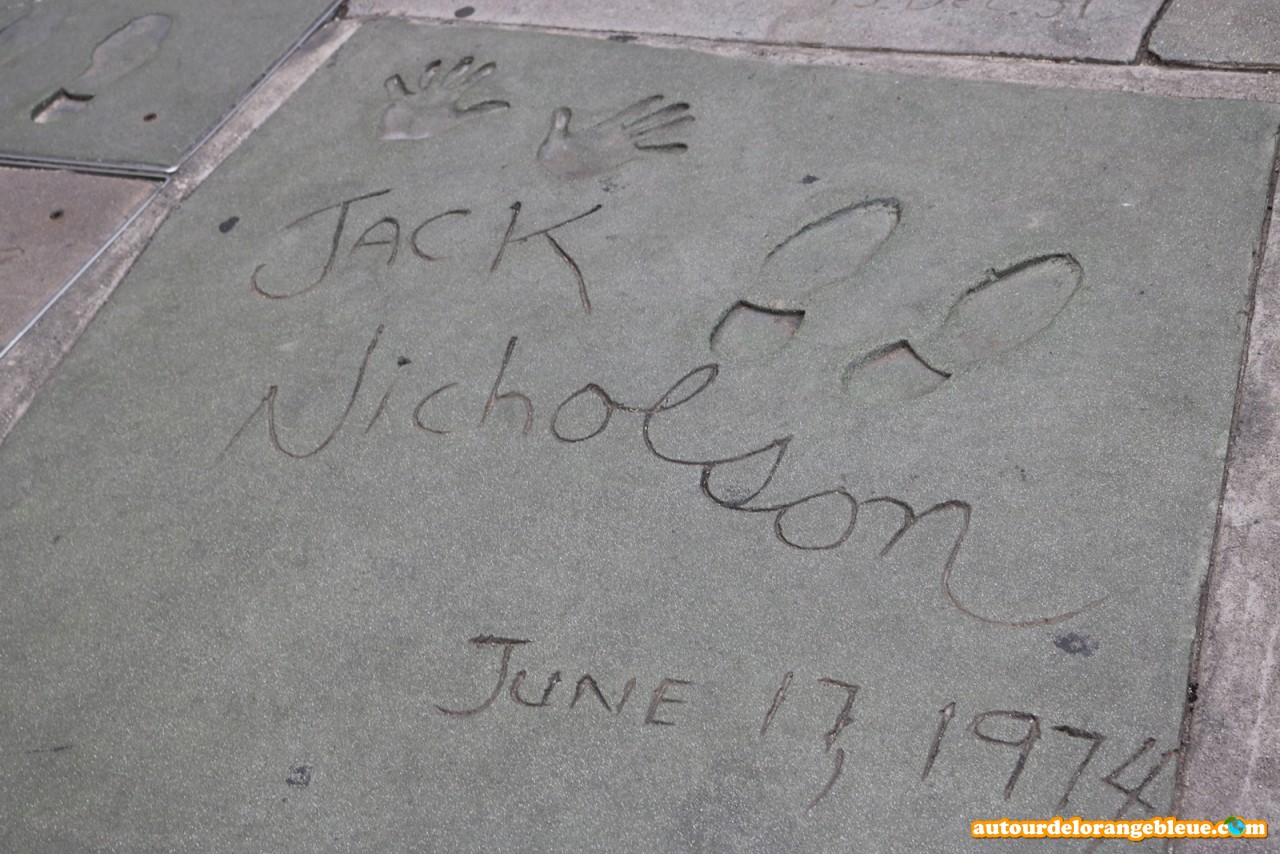 JACK
Nicholson
JUNE 17, 1974
autourdelorangebleue.com